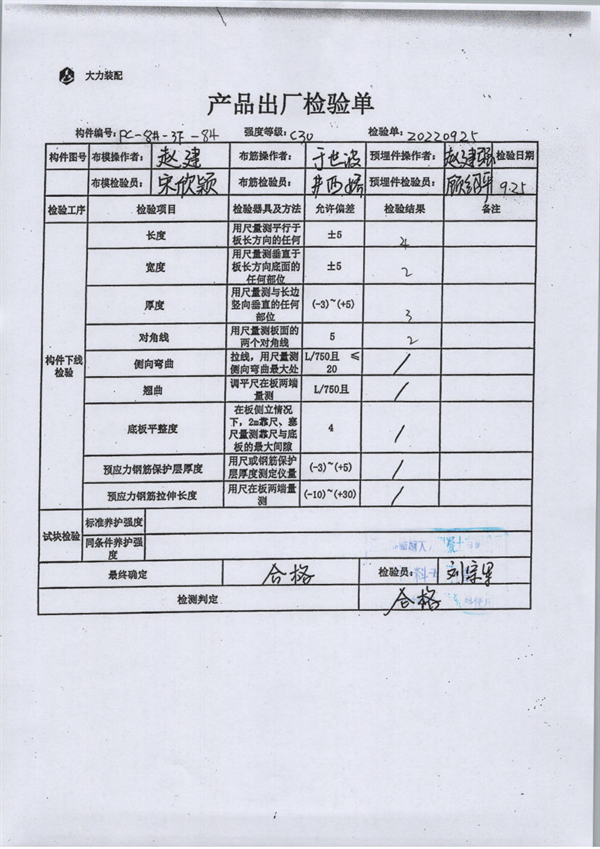 大力装配
产品出厂检验单
构件编号: PC-8#-3F-84 强度等级: C30 检验单: 20220925
构件图号 布模操作者: 赵建 布筋操作者: 于世波 预埋件操作者: 赵建强 检验日期
布模检验员: 宋欣颖 布筋检验员: 预埋件检验员: 9.25
检验工序 检验项目 检验器具及方法 允许偏差 检验结果 备注
构件下线检验
长度 用尺量测平行于板长方向的任何 ±5 4
宽度 用尺量测垂直于板长方向底面的任何部位 ±5 2
厚度 用尺量测与长边竖向垂直的任何部位 (-3)~(+5) 3
对角线 用尺量测板面的两个对角线 5 2
侧向弯曲 拉线，用尺量测侧向弯曲最大处 L/750且 ≤20 /
翘曲 调平尺在板两端量测 L/750且 /
底板平整度 在板侧立情况下，2m靠尺、塞尺量测靠尺与底板的最大间隙 4 /
预应力钢筋保护层厚度 用尺或钢筋保护层厚度测定仪量 (-3)~(+5) /
预应力钢筋拉伸长度 用尺在板两端量测 (-10)~(+30) /
试块检验 标准养护强度
同条件养护强度
最终确定 合格 检验员: 刘宗果
检测判定 合格